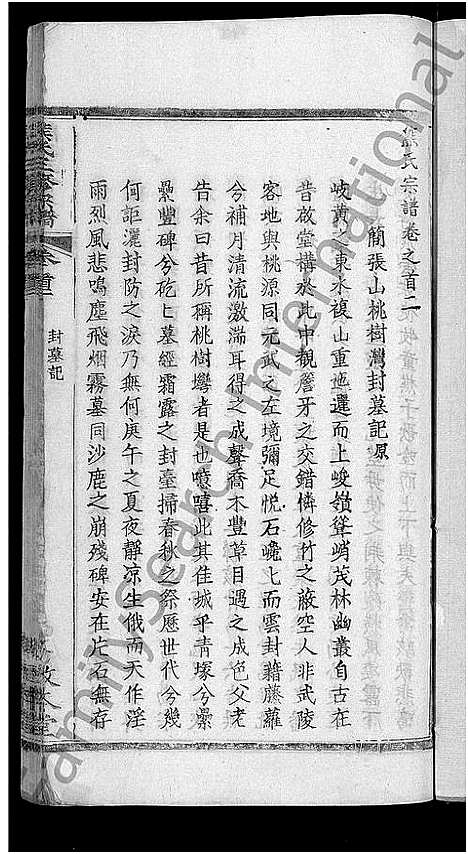 氏宗譜卷之首二
簡張山桃樹灣封墓記原
岐黃之東水複山重迤邐而上峻嶺聳峭茂林幽叢自古在
昔故堂構於此中觀簷牙之交錯憐修竹之蔽空人非武陵
客地與桃源同元武之左境彌足悅石巉匕而雲封藉藤蘿
兮補月清流激湍耳得之成聲喬木豐草目遇之成色父老
告余曰昔所稱桃樹灣者是也噫嘻此其佳城乎青塚兮纍
纍豐碑兮矻匕墓經霜露之封臺掃春秋之祭歷世代兮幾
何詎灑封防之淚乃無何庚午之夏夜靜凉生俄而天作淫
雨烈風悲鳴塵飛烟霧墓同沙鹿之崩殘碑安在片石無存
氏宗譜
卷首
封墓記
敦本堂
FamilySearch International